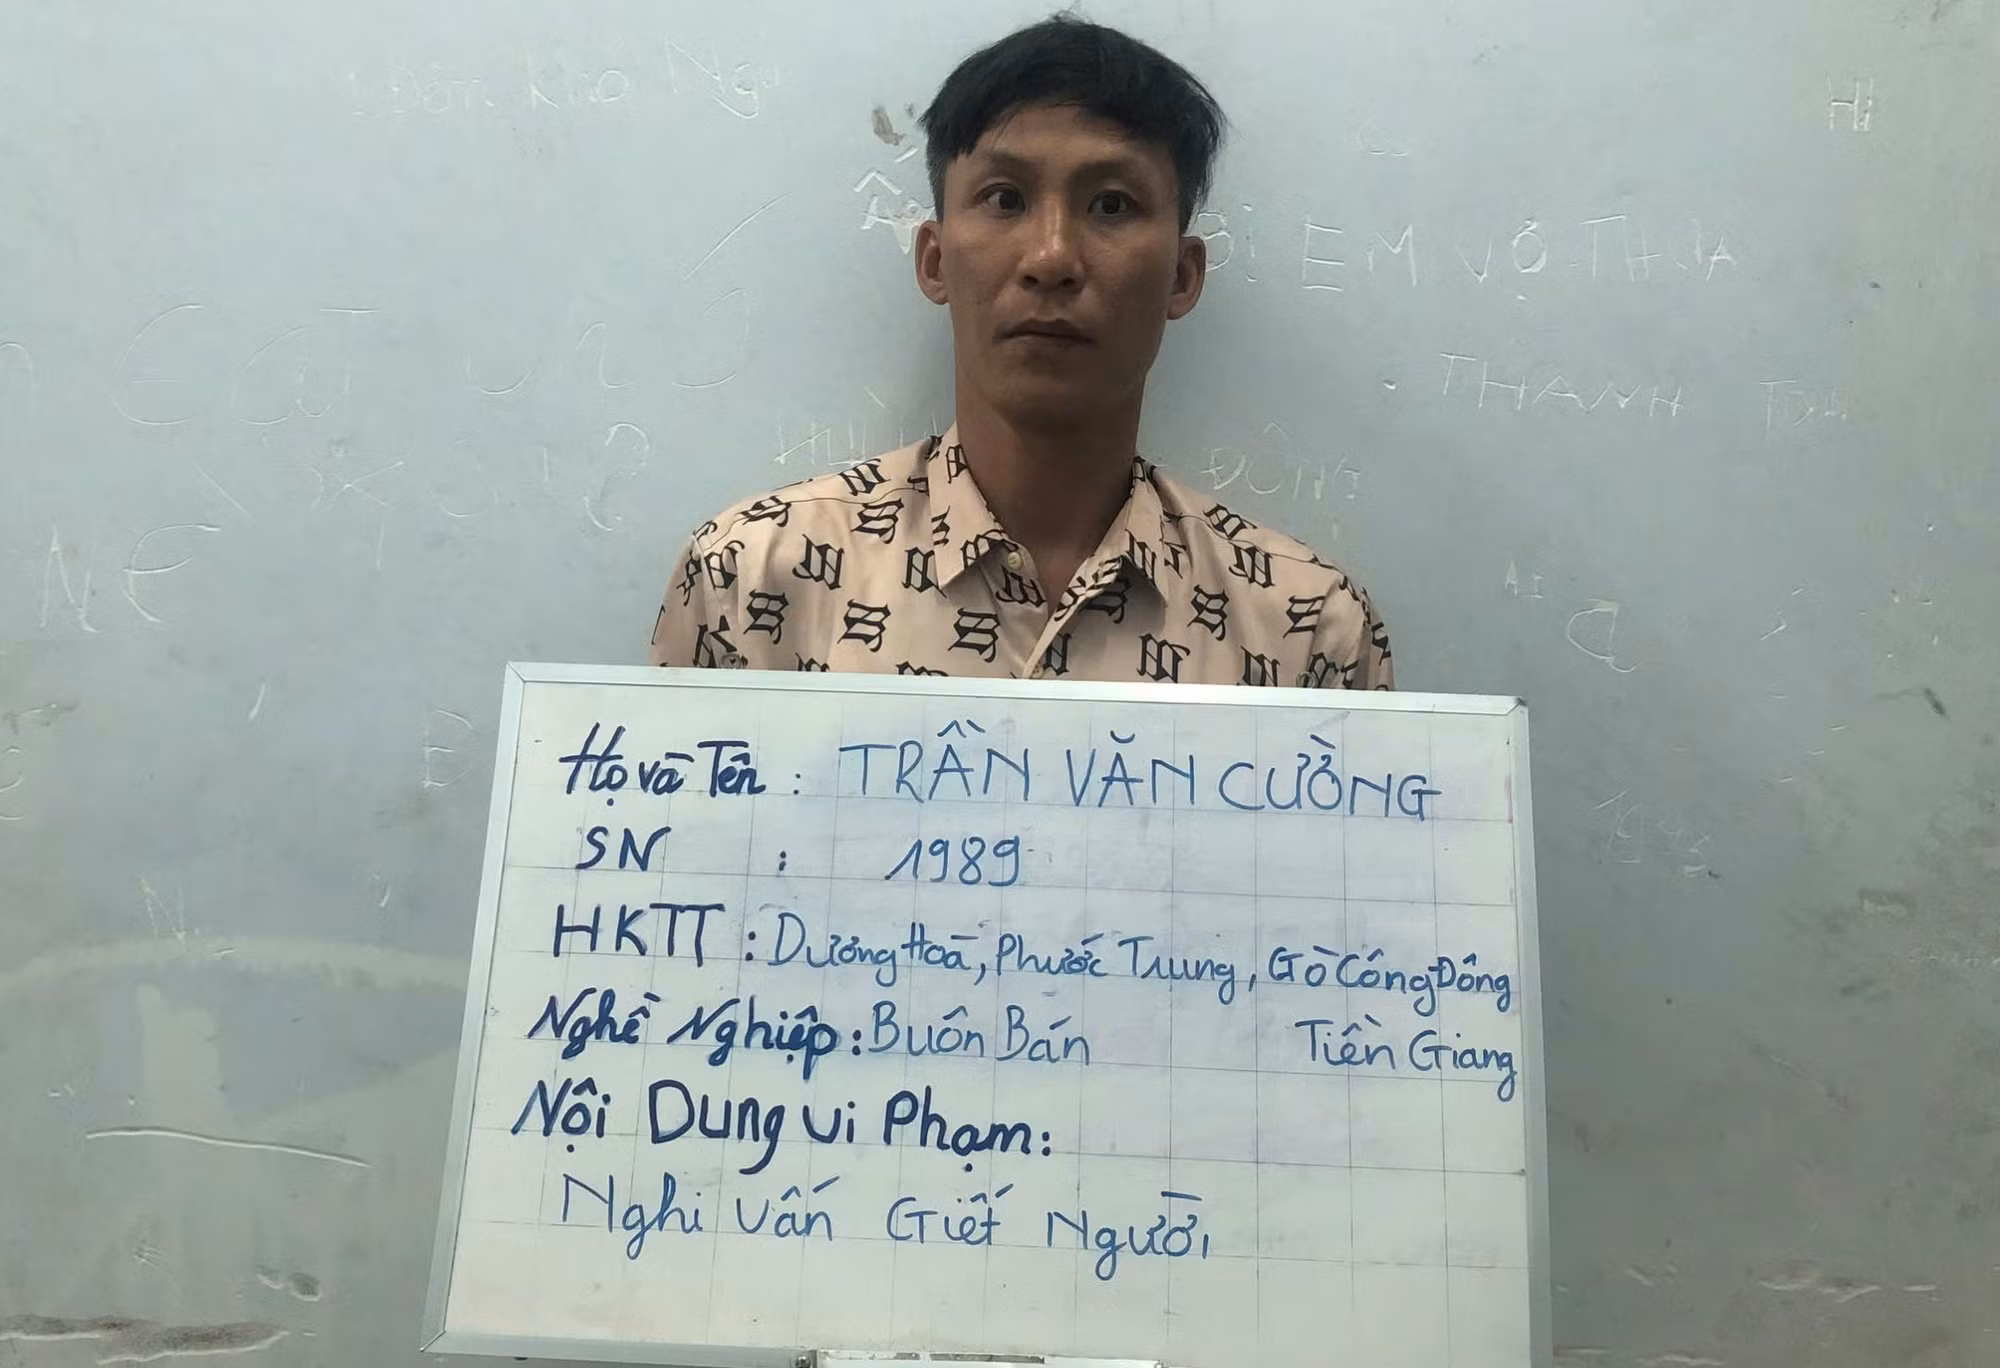 HI
EM VỢ THUA
THANH
ĐÔNG
NE
Họ và Tên : TRẦN VĂN CƯỜNG
SN : 1989
HKTT : Dương Hoà, Phước Trung, Gò Công Đông
Tiền Giang
Nghề Nghiệp : Buôn Bán
Nội Dung Vi Phạm :
Nghi Vấn Giết Người